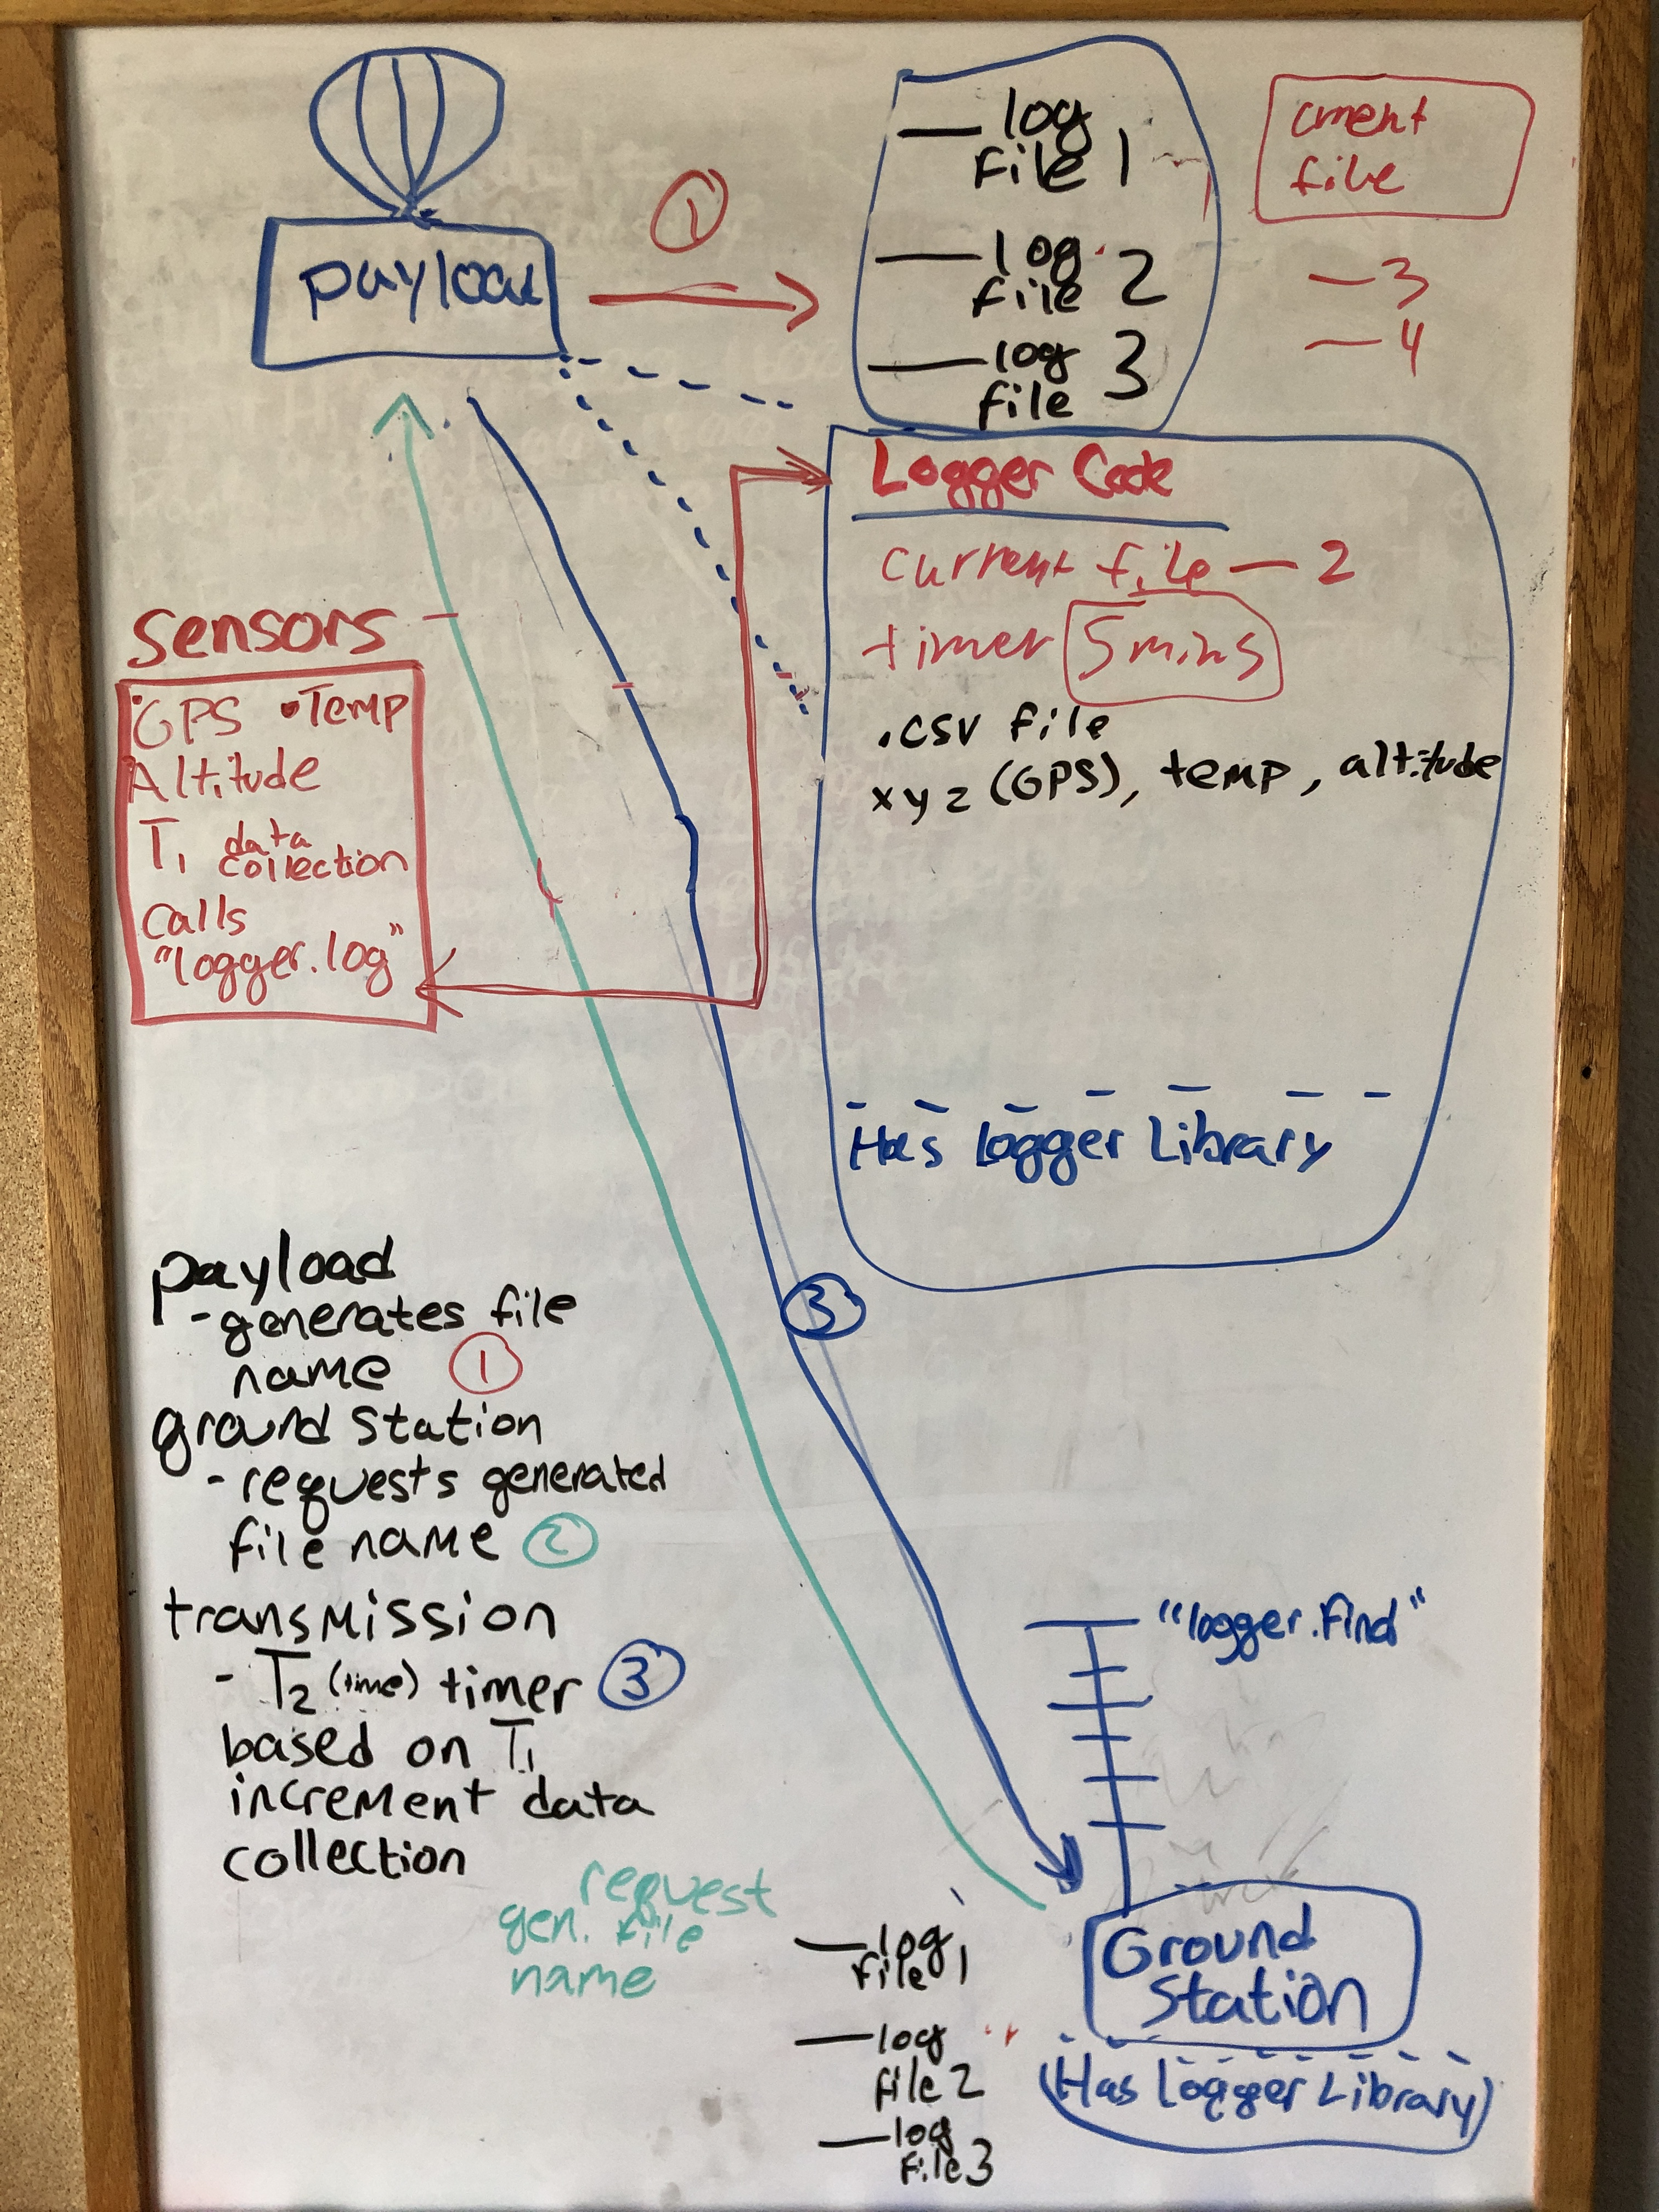 payload
1
log
file 1
log
file 2
log
file 3
file
3
4
Logger Code
current file — 2
timer 5 mins
.csv file
xyz (GPS), temp, altitude
Has Logger Library
sensors
GPS • Temp
Altitude
T1 data
collection
calls
"logger.log"
payload
- generates file
name 1
ground station
- requests generated
file name 2
transmission
- T2 (time) timer 3
based on T1
increment data
collection
3
request
gen. file
name
"logger.find"
log
file 1
log
file 2
log
file 3
Ground
Station
(Has Logger Library)